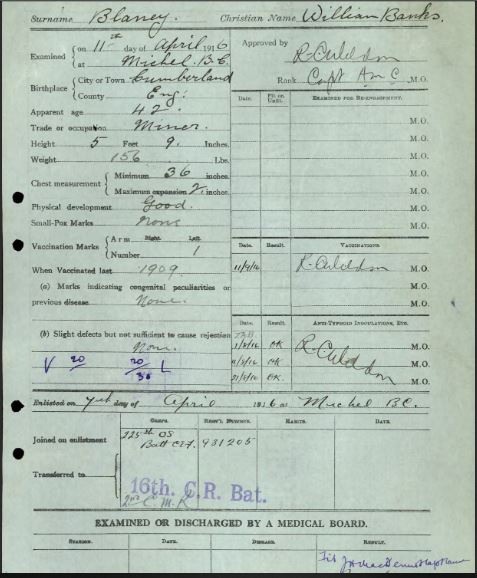 Surname Blaney. Christian Name William Banks.
Examined { on 11th day of April 1916
at Michel B.C.
Approved by
Rank Capt A M C M.O.
Birthplace { City or Town Cumberland
County Eng.
Apparent age 42
Trade or occupation Miner.
Height 5 Feet 9. Inches.
Weight 156 Lbs.
Chest measurement { Minimum 36 inches
Maximum expansion 2 inches.
Physical development Good.
Small-Pox Marks None
Vaccination Marks { Arm Right. Left.
Number 1
When Vaccinated last 1909
(a) Marks indicating congenital peculiarities or
previous disease None.
(b) Slight defects but not sufficient to cause rejection
None.
V 20 20/30 L
Date. Fit or Unfit. Examined for Re-engagement.
M.O.
M.O.
M.O.
M.O.
M.O.
M.O.
M.O.
Date. Result. Vaccinations.
M.O.
M.O.
Date. Result. Anti-Typhoid Inoculations, Etc.
OK M.O.
OK M.O.
OK. M.O.
Enlisted on day of April 1916 at Michel B.C.
Corps. Reg't. Number. Habits. Date.
Joined on enlistment 225th OS Batt C.E.F. 931205
Transferred to 16th. C.R. Bat.
2nd C.M.R.
EXAMINED OR DISCHARGED BY A MEDICAL BOARD.
Reason. Date. Disease. Result.
Fit